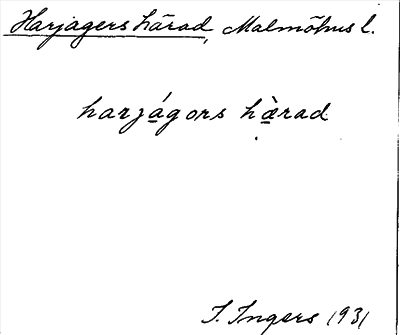 Harjagers härad, Malmöhus l.
harjágors hæ̀rad
I. Ingers 1931